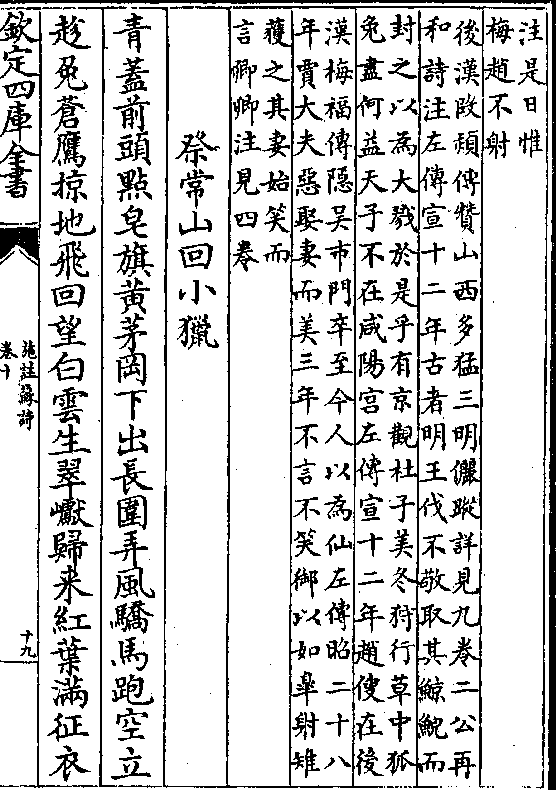 注是日惟
梅趙不射
後漢段熲傳贊山西多猛三明儷蹤詳見九卷二公再
和詩注左傳宣十二年古者明王伐不敬取其鯨鯢而
封之以為大戮於是乎有京觀杜子美冬狩行草中狐
兔盡何益天子不在咸陽宫左傳宣十二年趙傁在後
漢梅福傳隐吴市門卒至今人以為仙左傳昭二十八
年賈大夫惡娶妻而美三年不言不笑御以如臯射雉
獲之其妻始笑而
言卿卿注見四卷
祭常山回小獵
青蓋前頭點皂旗黄茅岡下出長圍弄風驕馬跑空立
趁兔蒼鷹掠地飛回望白雲生翠巘歸来紅葉滿征衣
欽定四庫全書
施註蘇詩
卷十
十九